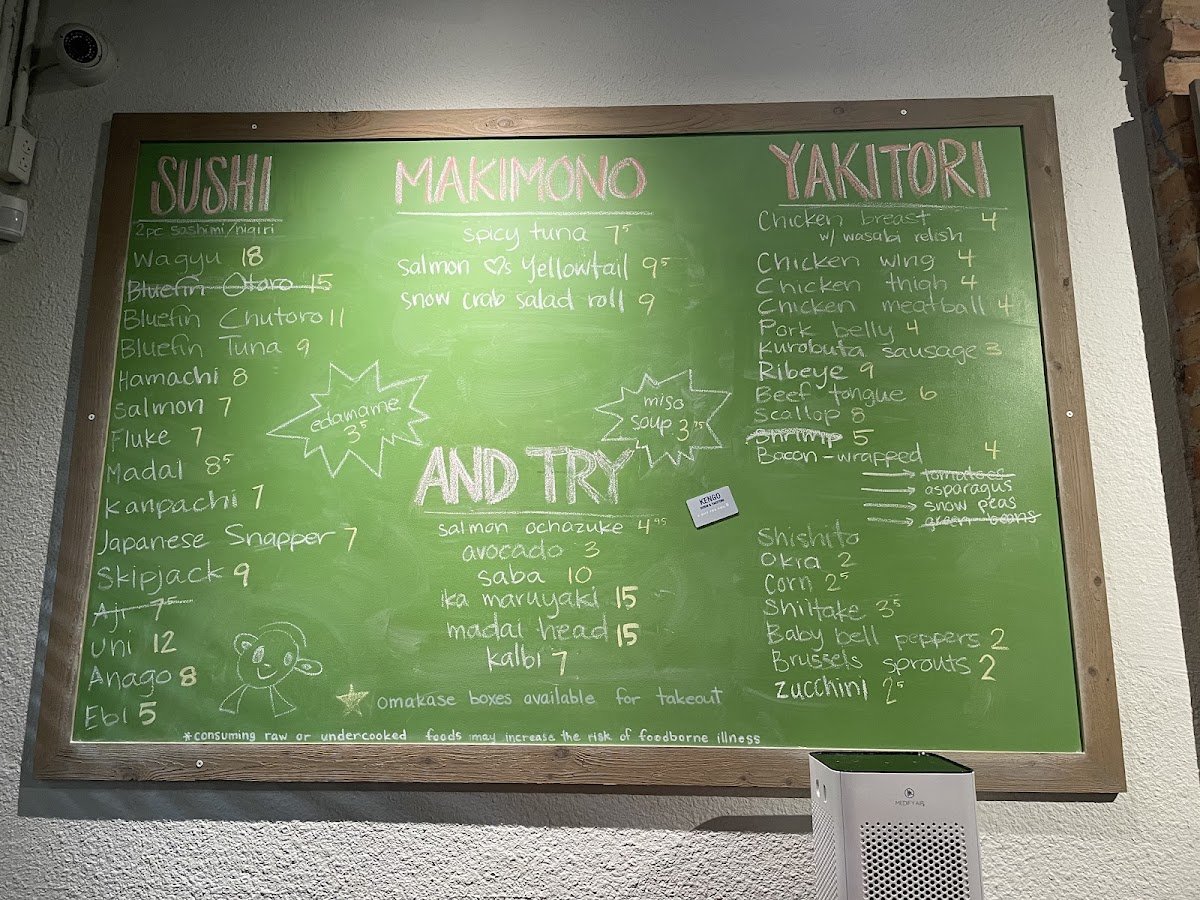 SUSHI
2pc sashimi/nigiri
Wagyu 18
Bluefin Otoro 15
Bluefin Chutoro 11
Bluefin Tuna 9
Hamachi 8
Salmon 7
Fluke 7
Madai 8⁵
Kanpachi 7
Japanese Snapper 7
Skipjack 9
Aji 7⁵
Uni 12
Anago 8
Ebi 5
MAKIMONO
spicy tuna 7⁵
Salmon ♡s Yellowtail 9⁵
snow crab salad roll 9
edamame
3⁵
miso
soup 3⁷⁵
AND TRY
salmon ochazuke 4⁹⁵
avocado 3
saba 10
ika maruyaki 15
madai head 15
kalbi 7
☆ omakase boxes available for takeout
*consuming raw or undercooked foods may increase the risk of foodborne illness
YAKITORI
Chicken breast 4
w/ wasabi relish
Chicken wing 4
Chicken thigh 4
Chicken meatball 4
Pork belly 4
Kurobuta sausage 3
Ribeye 9
Beef tongue 6
Scallop 8
Shrimp 5
Bacon-wrapped 4
→ tomatoes
→ asparagus
→ snow peas
→ green beans
Shishito
Okra 2
Corn 2⁵
Shiitake 3⁵
Baby bell peppers 2
Brussels sprouts 2
Zucchini 2⁵
KENGO
MEDIFY AIR